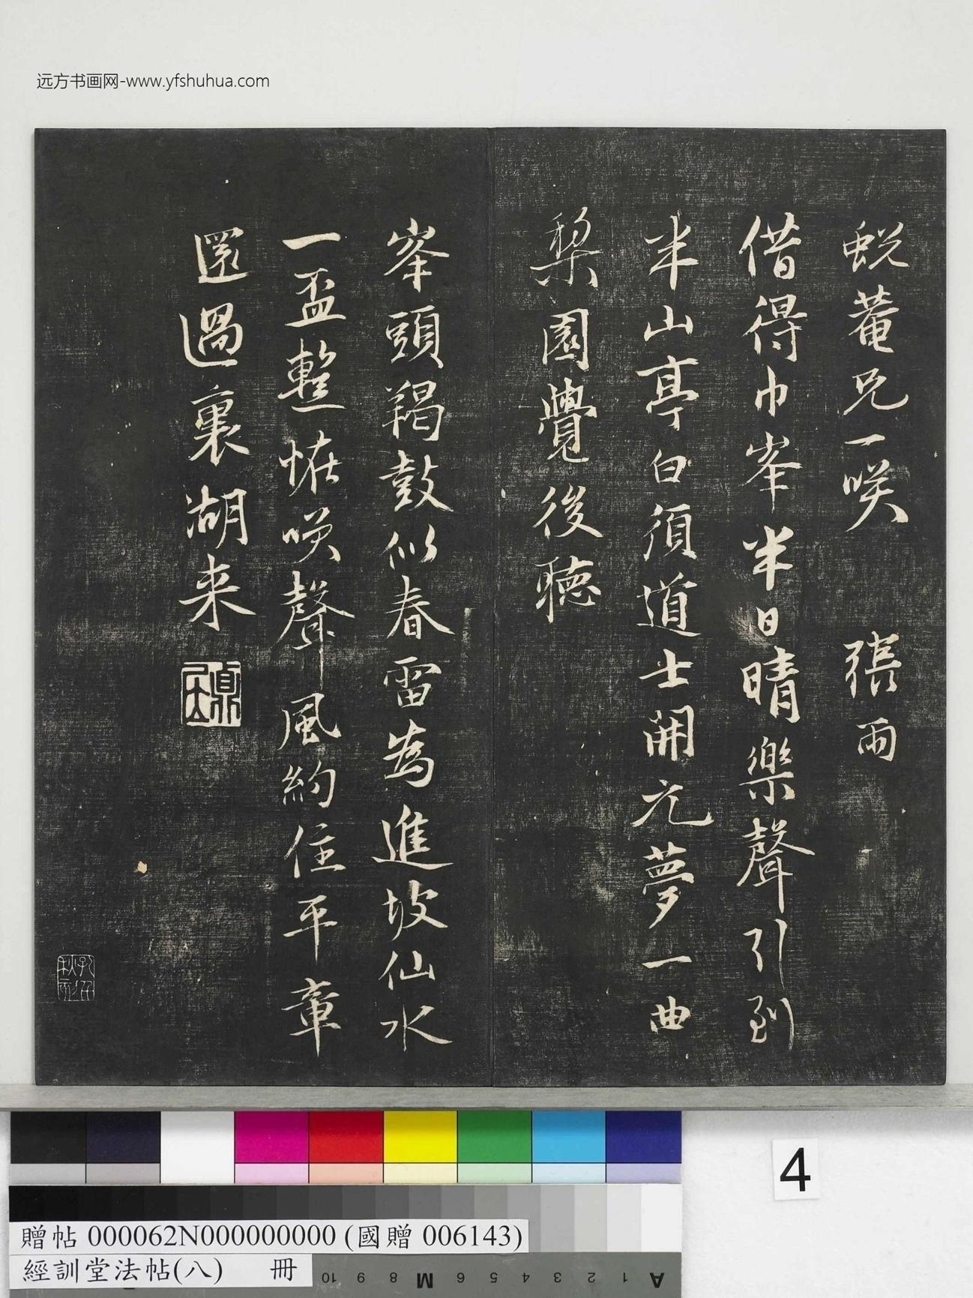 远方书画网-www.yfshuhua.com
蛻菴兄一咲 張雨
借得巾峯半日晴樂聲引到
半山亭白須道士開元夢一曲
棃園覺後聽
峯頭羯鼓似春雷為進坡仙水
一盃整恠咲聲風約住平章
還過裏湖来
4
贈帖 000062N000000000 (國贈 006143)
經訓堂法帖(八) 冊
10 9 8 M 6 5 4 3 2 1 A